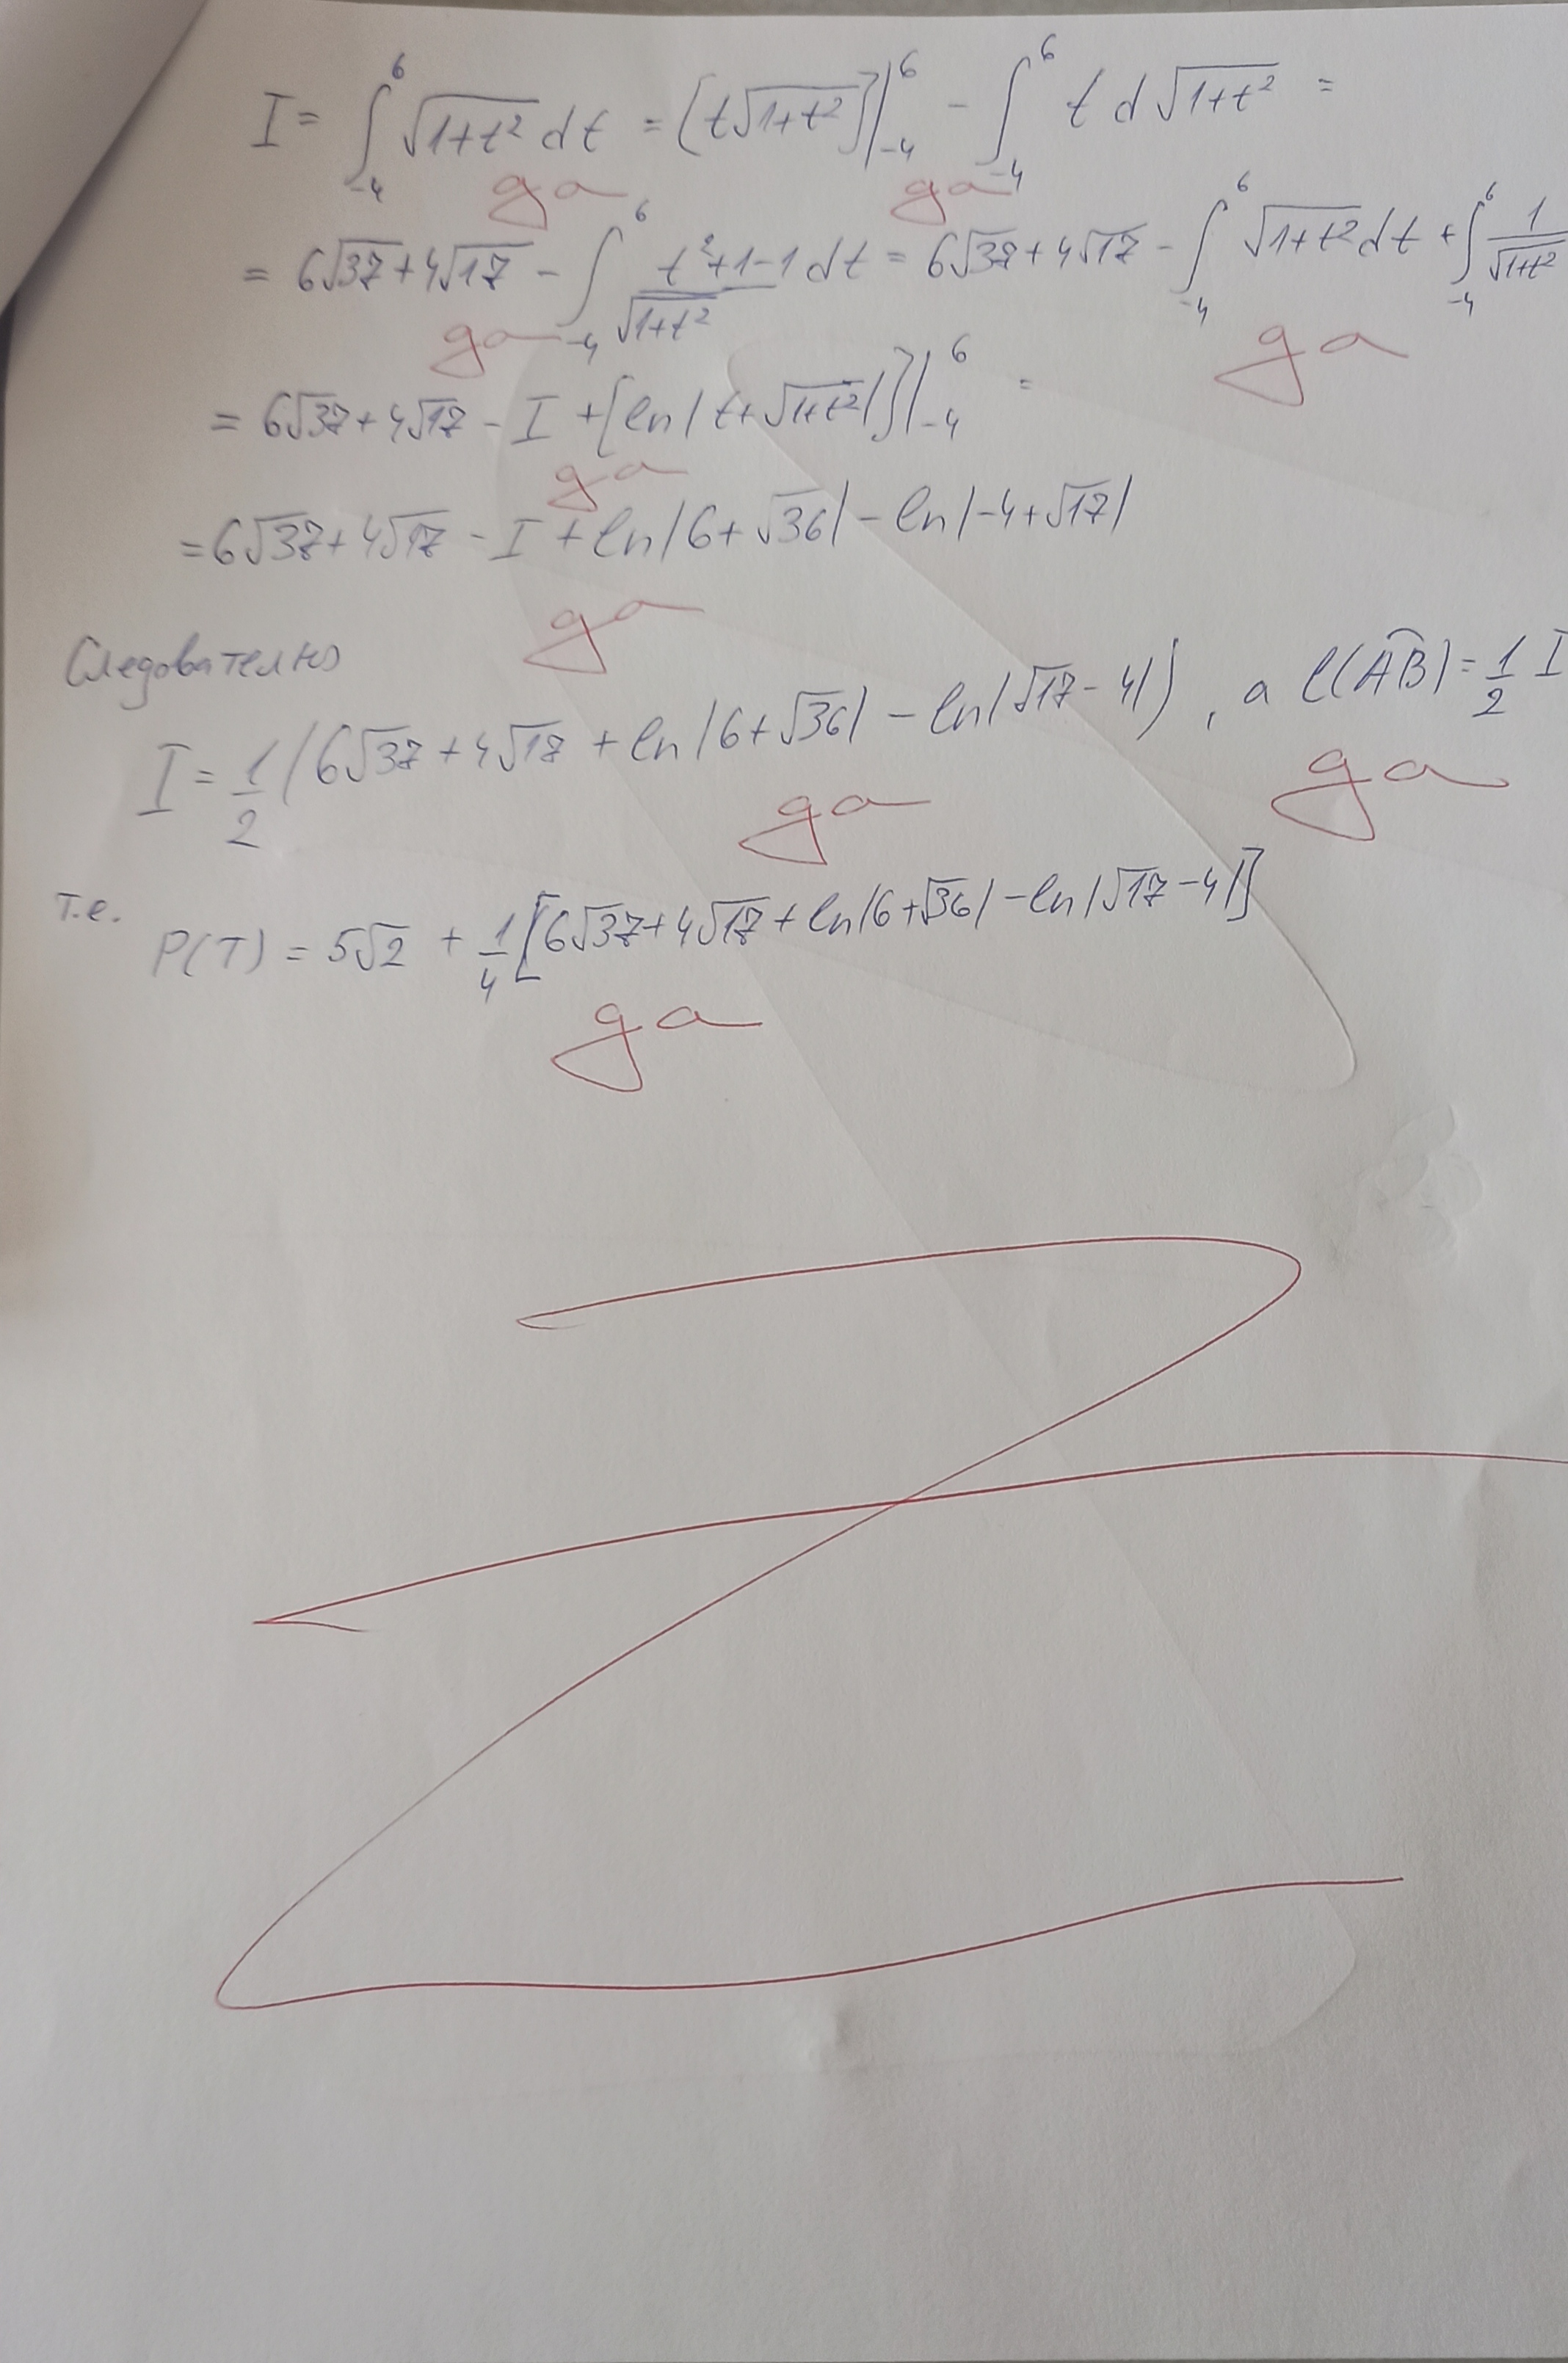 I = ∫_{-4}^{6} √(1+t²) dt = [t√(1+t²)]|_{-4}^{6} - ∫_{-4}^{6} t d√(1+t²) =
да да
= 6√37 + 4√17 - ∫_{-4}^{6} (t²+1-1)/√(1+t²) dt = 6√37 + 4√17 - ∫_{-4}^{6} √(1+t²) dt + ∫_{-4}^{6} 1/√(1+t²)
да да
= 6√37 + 4√17 - I + [ln|t+√(1+t²)|]|_{-4}^{6} =
да
= 6√37 + 4√17 - I + ln|6+√36| - ln|-4+√17|
да
Следователно
I = 1/2 (6√37 + 4√17 + ln|6+√36| - ln|√17-4|), а l(AB) = 1/2 I
да да
т.е. P(T) = 5√2 + 1/4 [6√37 + 4√17 + ln|6+√36| - ln|√17-4|]
да